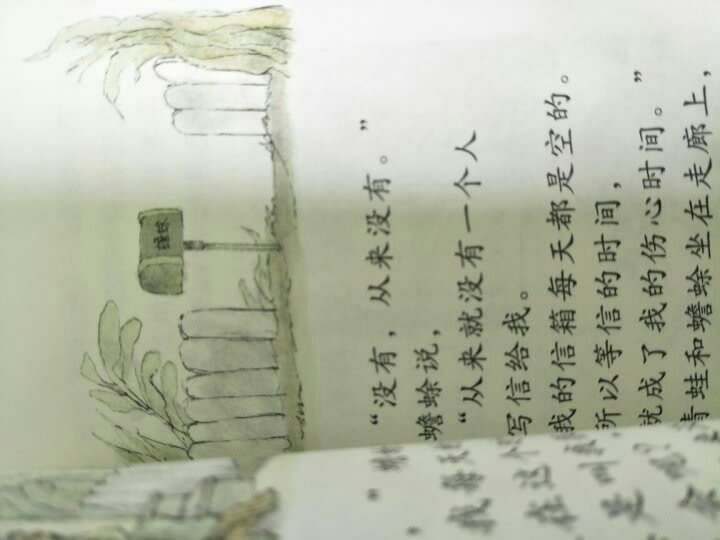 蟾蜍
“没有，从来没有。”
蟾蜍说，
“从来就没有一个人
写信给我。
我的信箱每天都是空的。
所以等信的时间，
就成了我的伤心时间。”
青蛙和蟾蜍坐在走廊上，
我每
在这
在叫
是